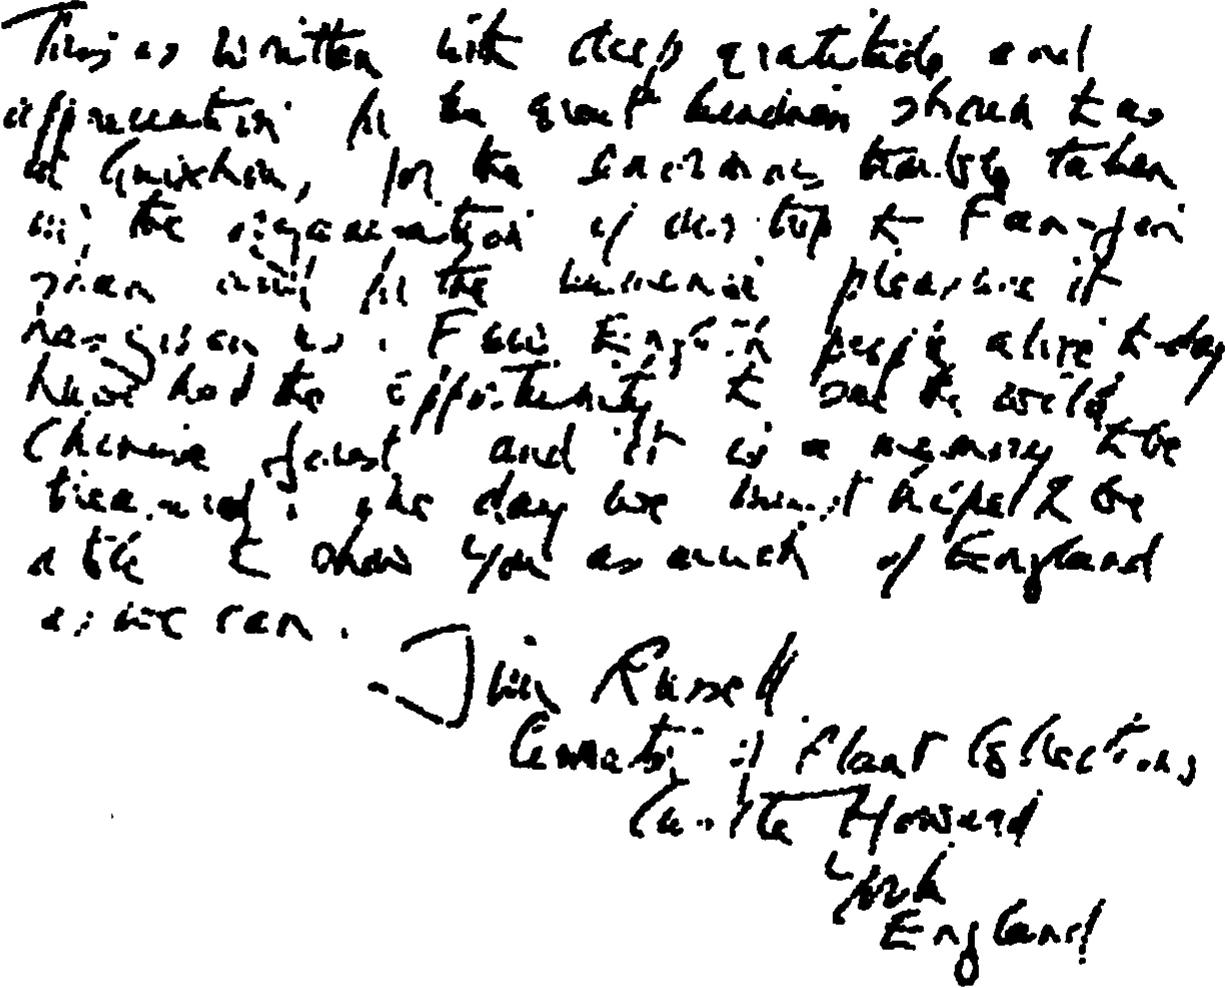 This is written with deep gratitude and
appreciation for the great kindness shown to us
at for the enormous trouble taken
in the organisation of our trip to Fan-jin
shan and for the immense pleasure it
has given us. Few English people alive to-day
have had the opportunity to see the wild
Chinese forest and it is a memory to be
treasured. One day we must hope to be
able to show you as much of England
as we can.
Jim Russell
Curator of Plant Collections
Castle Howard
York
England